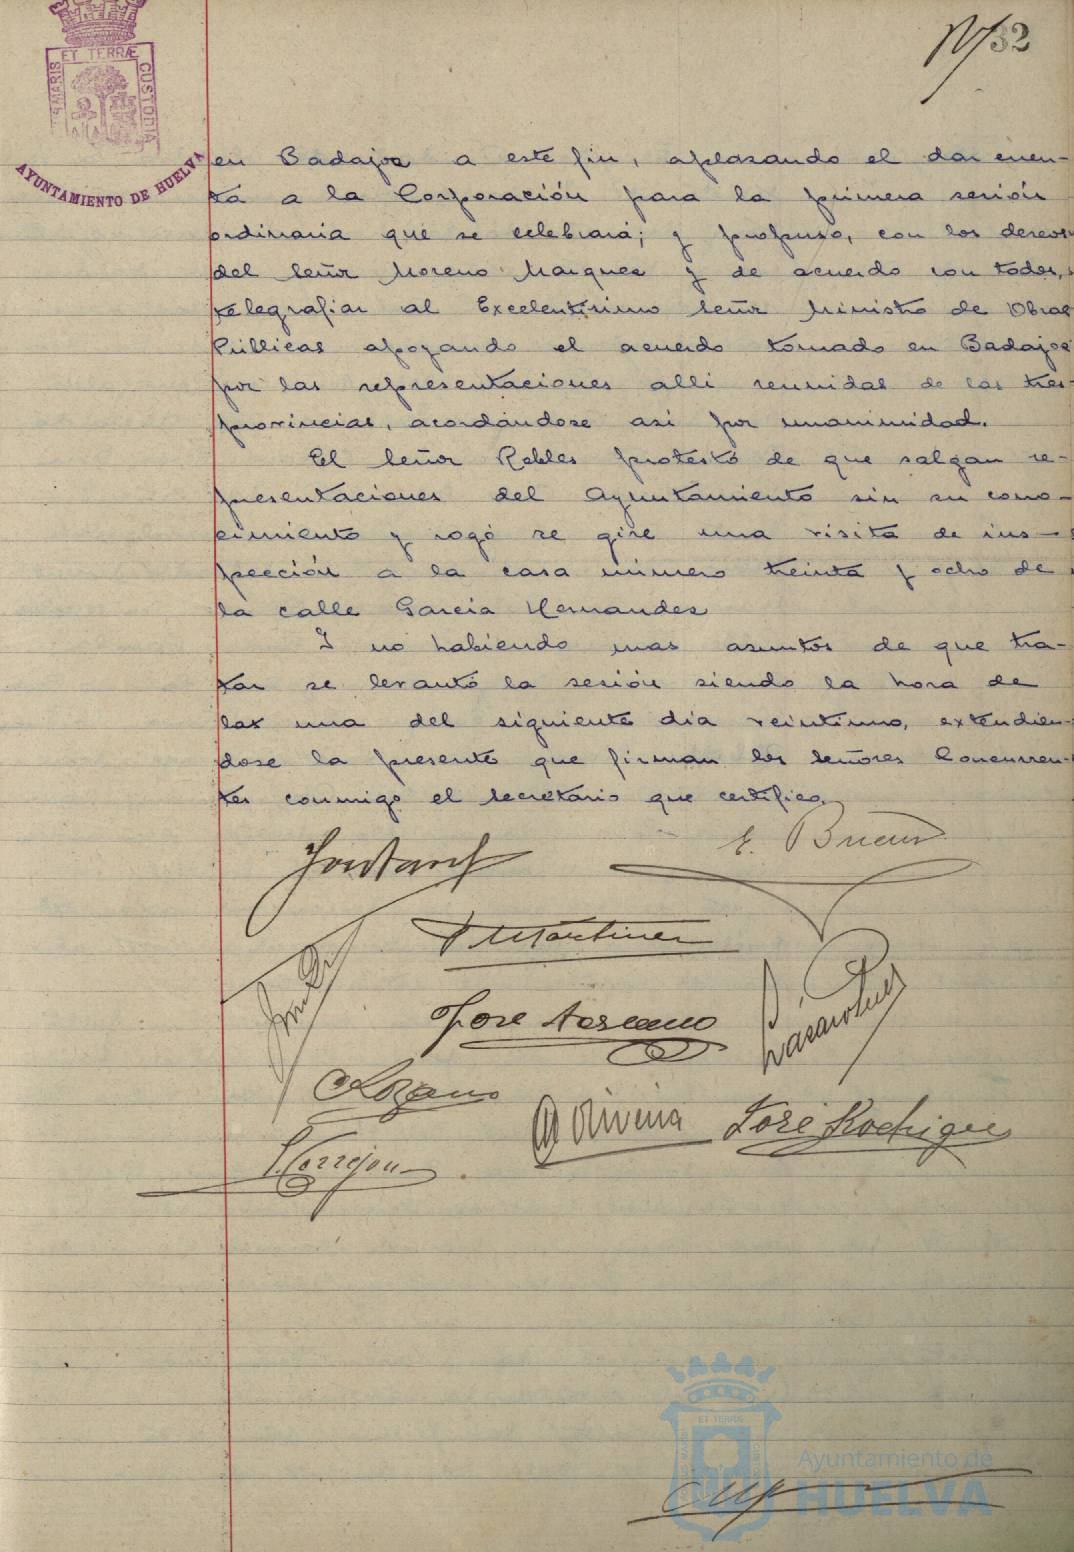 32
PORTUS MARIS ET TERRÆ CUSTODIA
AYUNTAMIENTO DE HUELVA
en Badajoz a este fin, aplazando el dar cuen-
ta a la Corporación para la primera sesión
ordinaria que se celebrará; y propuso, con los deseos
del Señor Moreno Marquez y de acuerdo con todos,
telegrafiar al Excelentísimo Señor Ministro de Obras
Públicas apoyando el acuerdo tomado en Badajoz
por las representaciones alli reunidas de las tres
provincias, acordándose asi por unanimidad.
El Señor Robles protestó de que salgan re-
presentaciones del Ayuntamiento sin su cono-
cimiento y rogó se gire una visita de ins-
pección a la casa número treinta y ocho de
la calle Garcia Hernandez
Y no habiendo mas asuntos de que tra-
tar se levantó la sesión siendo la hora de
las una del siguiente dia veintiuno, extendien-
dose la presente que firman los Señores Concurren-
tes conmigo el Secretario que certifico.
E.
Martinez
José
Lozano
José Rodriguez
Ayuntamiento de
HUELVA